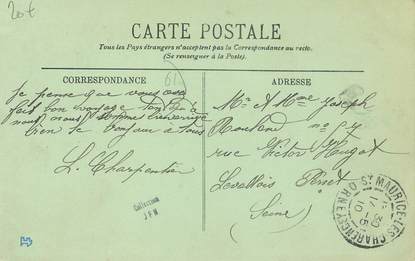 20 f
CARTE POSTALE
Tous les Pays étrangers n'acceptent pas la Correspondance au recto.
(Se renseigner à la Poste).
CORRESPONDANCE
61
Je pense que vous avez
fait bon voyage
nous nous sommes
rien le bonjour à tous
L. Charpentier
Collection
JFN
ADRESSE
Mr & Mme Joseph
rue Victor Hugot
Levallois Perret
(Seine)
ST MAURICE-LES-CHARENCEY
ORNE